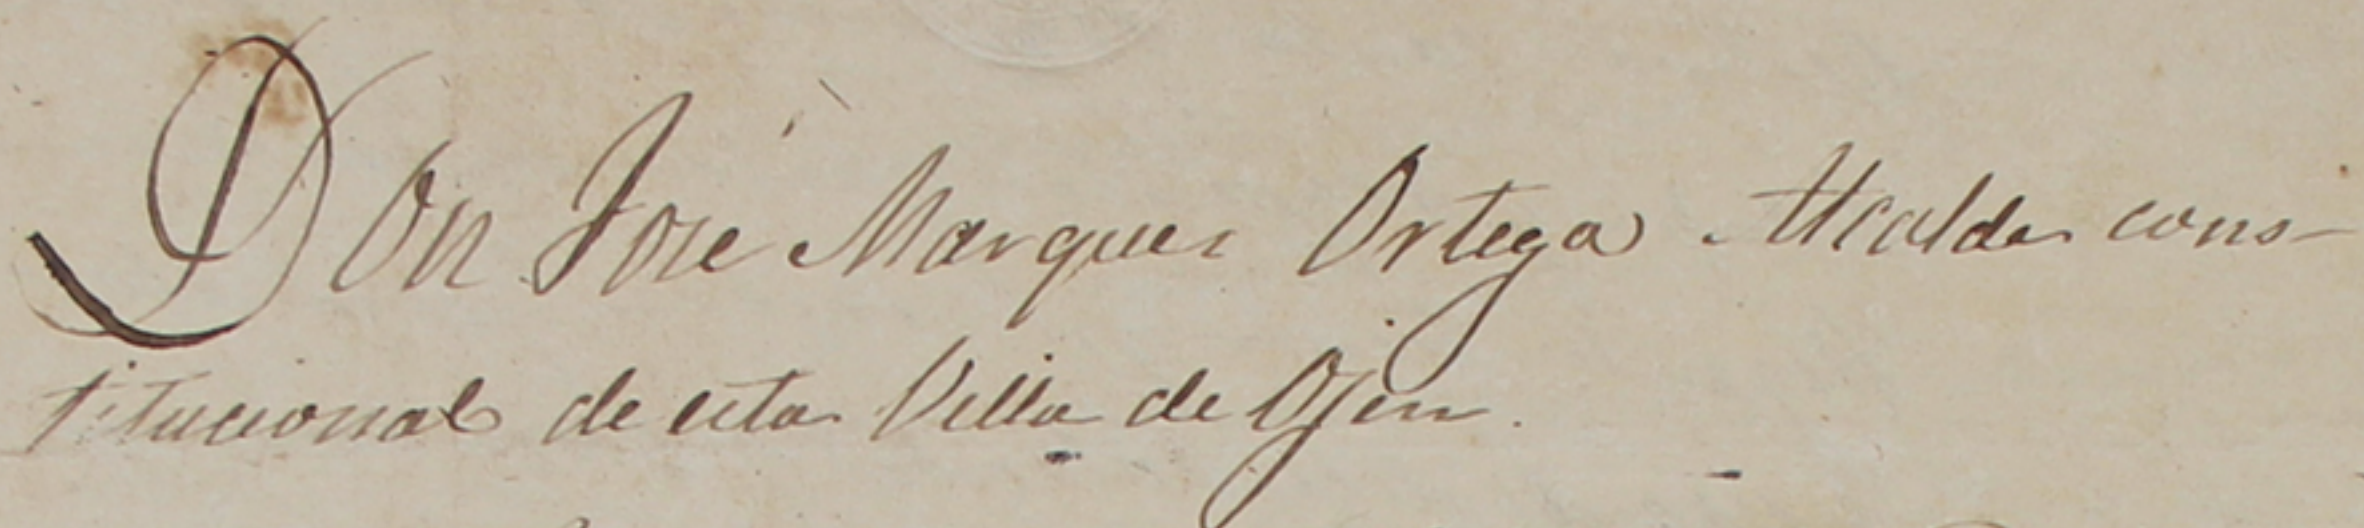 Don José Marquez Ortega Alcalde cons-
titucional de esta Villa de Ojen.